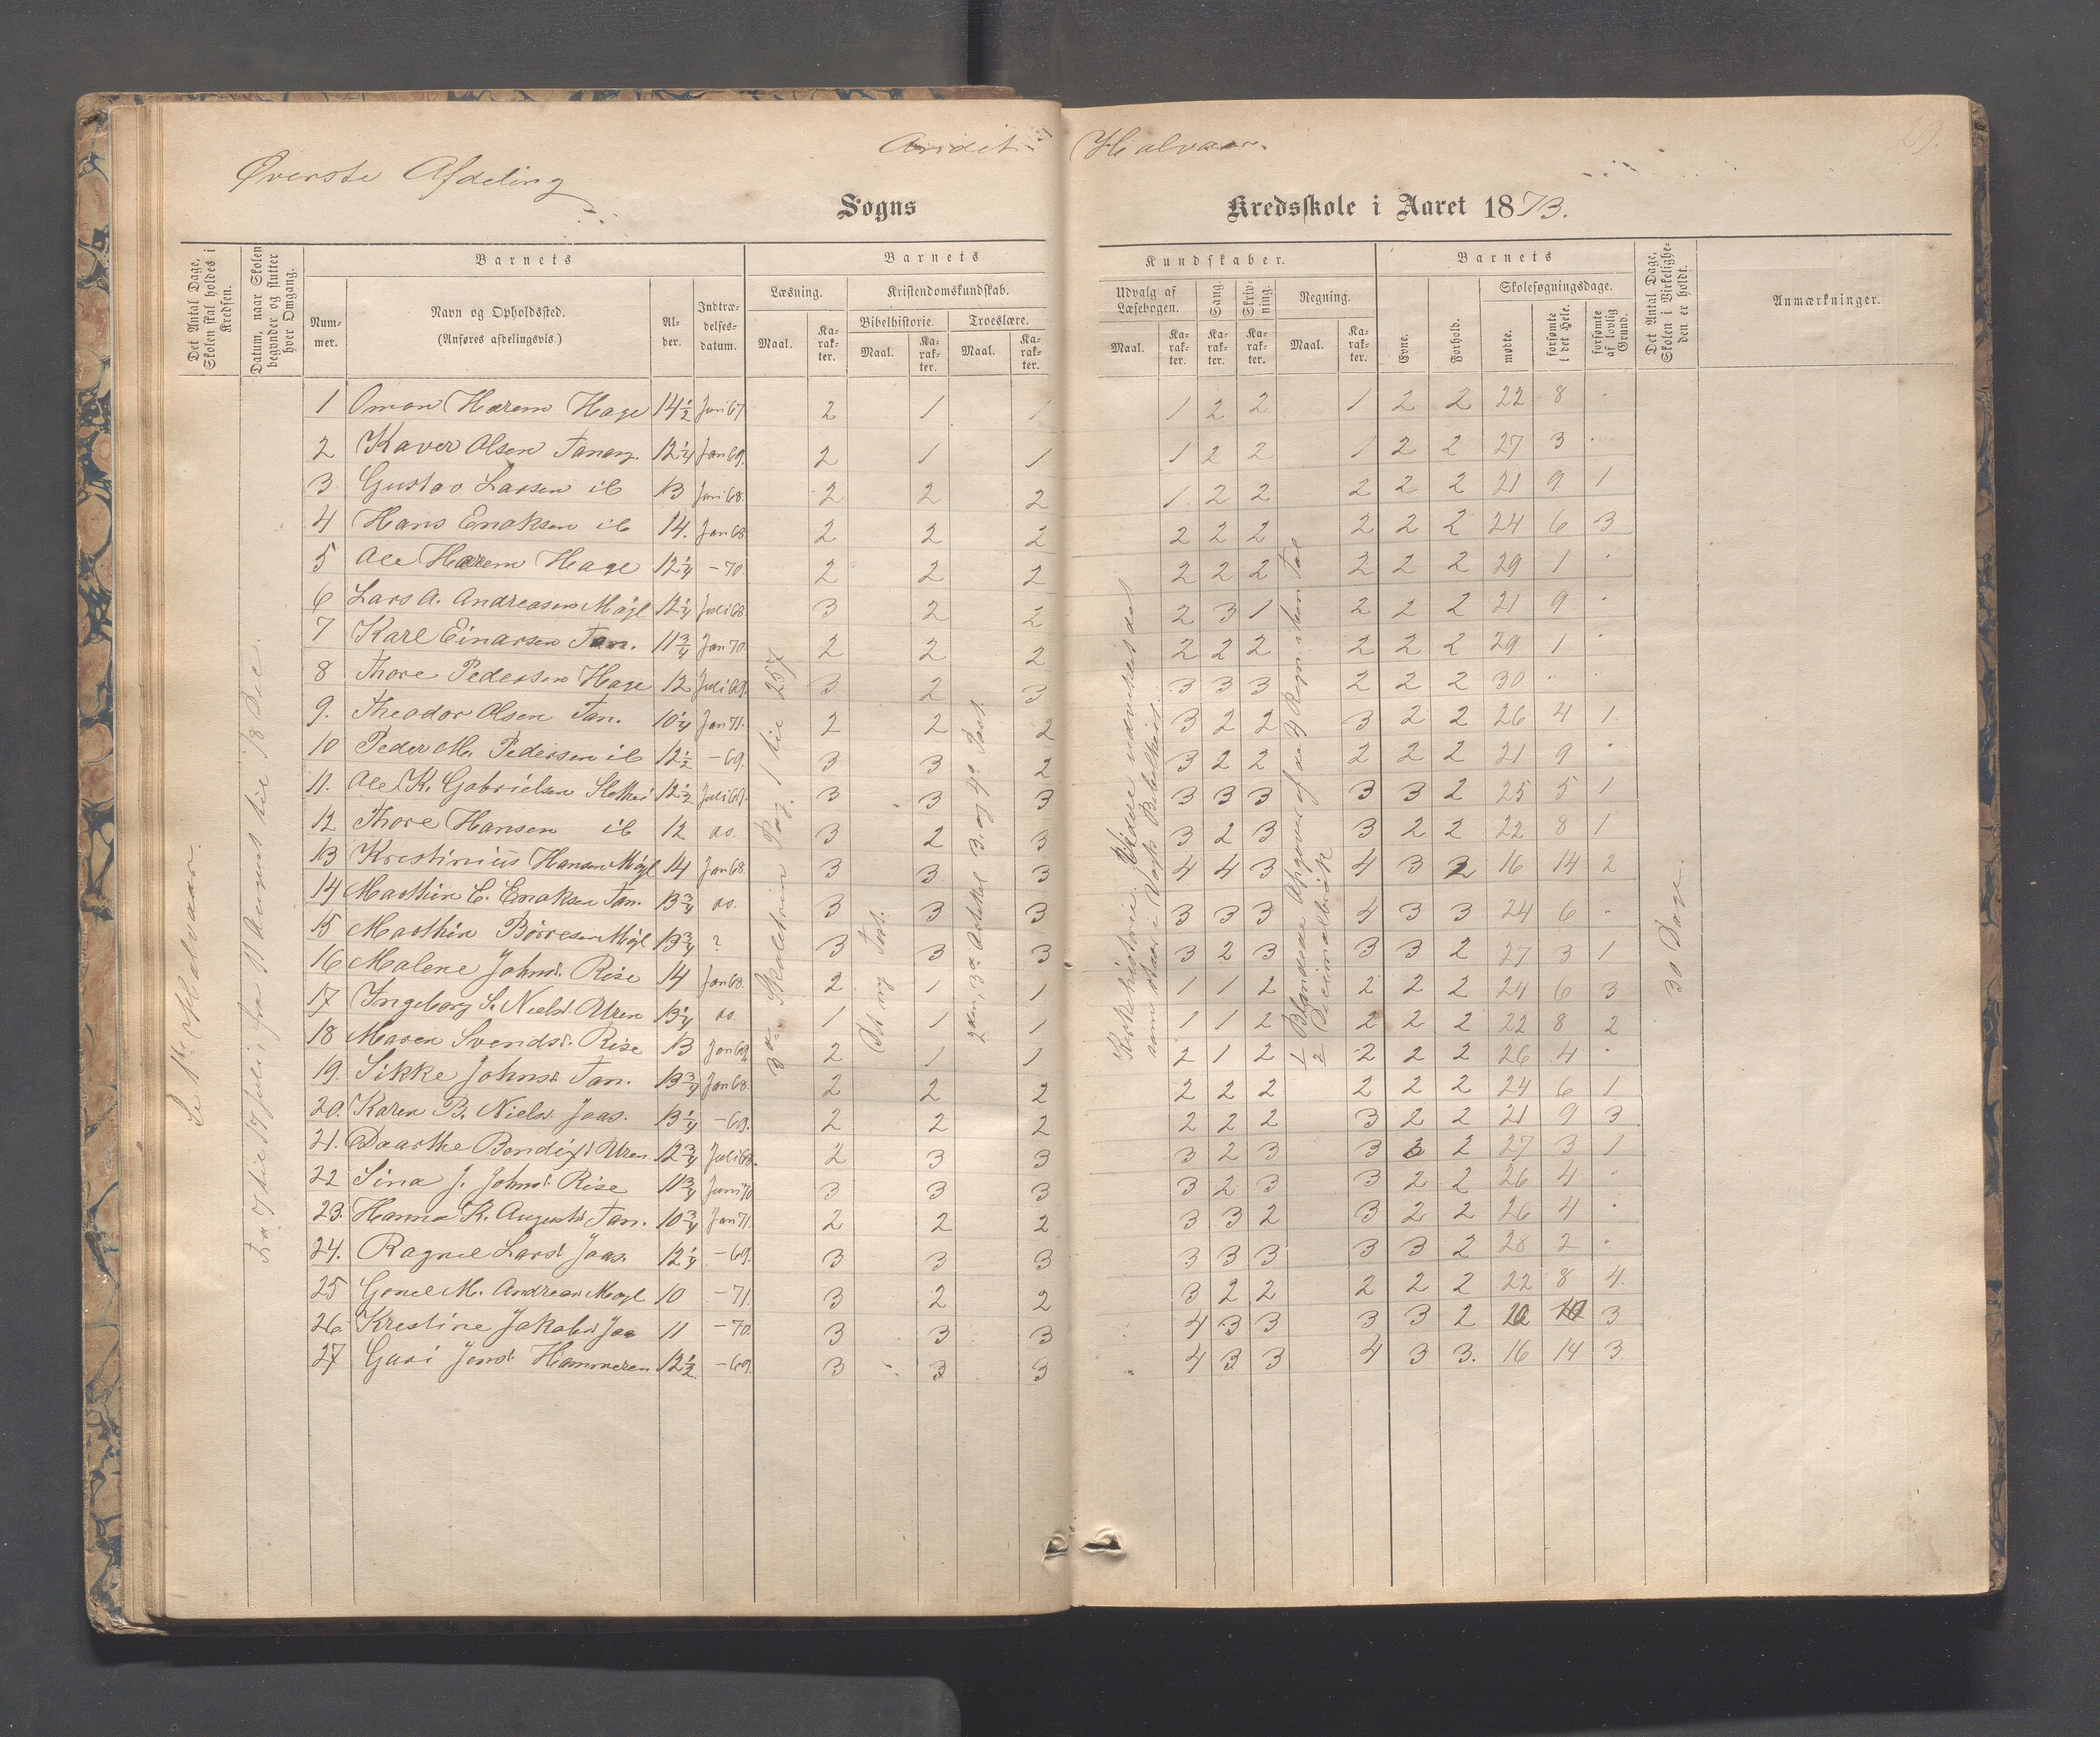 Øverste Afdeling
Halvaar.
Sogns
Kredsskole i Aaret 1873.
Det Antal Dage, Skolen skal holdes i Kredsen.
Datum, naar Skolen begynder og slutter hver Omgang.
Barnets
Barnets
Kundskaber.
Barnets
Det Antal Dage, Skolen i Virkelighe- den er holdt.
Anmærkninger.
Num- mer.
Navn og Opholdssted. (Anføres afdelingsvis.)
Al- der.
Indtræ- delses- datum.
Læsning.
Kristendomskundskab.
Bibelhistorie.
Troeslære.
Udvalg af Læsebogen.
Sang.
Skriv- ning.
Regning.
Evne.
Forhold.
Skolesøgningsdage.
Maal. Ka- rak- ter. Maal. Ka- rak- ter. Maal. Ka- rak- ter.
Maal. Ka- rak- ter. Ka- rak- ter. Ka- rak- ter. Maal. Ka- rak- ter.
mødte. forsømte i det Hele. forsømte af lovlig Grund.
1 Oman Harem Hage 14½ Juni 67 2 1 1 1 2 2 1 2 2 22 8 .
2 Kaver Olsen Tanang. 12¼ Jan 69. 2 1 1 1 2 2 1 2 2 27 3 .
3 Gustav Larsen ib 13 Juni 68. 2 2 2 1 2 2 2 2 2 21 9 1
4 Hans Enoksen ib 14. Jan 68. 2 2 2 2 2 2 2 2 2 24 6 3
5 Ole Harem Hage 12¼ -70. 2 2 2 2 2 2 2 2 2 29 1 .
6 Lars A. Andreasen Møgl 12¼ Juli 68 3 2 2 2 3 1 2 2 2 21 9 .
7 Karl Einarsen Tan. 11¾ Jan 70. 2 2 2 2 2 2 2 2 2 29 1 .
8 Thore Pedersen Hage 12 Juli 69. 3 2 3 3 3 3 2 2 2 30 . .
9. Theodor Olsen Tan. 10¼ Jan 71. 2 2 2 3 2 2 3 2 2 26 4 1.
10 Peder M. Pedersen ib 12½ -69. 3 3 2 3 2 2 2 2 2 21 9 .
11. Ole K. Gabrielsen 12½ Juli 67. 3 3 3 3 3 3 3 3 2 25 5 1
12 Thore Hansen ib 12 do. 3 2 3 3 2 3 3 2 2 22 8 1
13 Kristinius Hansen Møgl 14 Jan 68. 3 3 3 4 4 3 4 3 2 16 14 2
14 Marthin C. Enoksen Tan. 13¾ do. 3 3 3 3 3 3 4 3 3 24 6 .
15 Marthin Børresen Møgl 13¾ ? 3 3 3 3 2 3 3 3 2 27 3 1
16 Malene Johnsd. Rise 14 Jan 68. 2 1 1 1 1 2 2 2 2 24 6 3
17 Ingeborg S. Nielsd. Uren 13¼ do. 1 1 1 1 1 2 2 2 2 22 8 2
18 Maren Svendsd. Rise 13 Jan 69. 2 1 1 2 1 2 2 2 2 26 4 .
19. Sikke Johnsd. Tan. 13¾ Jan 68. 2 2 2 2 2 2 2 2 2 24 6 1
20. Karen B. Nielsd. Jaas. 13¼ -69. 2 2 2 2 2 2 3 2 2 21 9 3
21. Daarthe Bendixd. Uren. 12¾ Juli 68. 2 3 3 3 2 3 3 3 2 27 3 1
22 Sina J. Johnsd. Rise 11¾ Juni 70 3 3 3 3 2 3 3 2 2 26 4 .
23. Hanna K. Augustd. Tan. 10¾ Jan 71. 2 2 2 3 3 2 3 2 2 26 4 .
24. Ragnil Larsd. Jaas. 12¼ -69. 3 3 3 3 3 3 3 3 2 28 2 .
25 Gonel M. Andreasd. Møgl 10 -71. 3 2 2 3 2 2 2 2 2 22 8 4.
26. Kristine Jakobsd. Jaa 11 -70. 3 3 3 4 3 3 3 3 2 20 10 3
27 Guri Jensd. Hammeren 12½. -69. 3 3 3 4 3 3 4 3 3. 16 14 3
Se 1ste Halvaar.
Fra 7 til 17 Juli; fra 11 August til 18 Dec.
3die Skoletrin Pag. 1 til 257
Det ny Test.
2den, 3die Artikel 3. og 4de Part.
Kirkehistorie. Videre udenket det som staar i Vogts Bibelhist.
Blandede Opgaver af de 4 Regn. i hen Tal
½ Decimalbrøk
30 Dage.